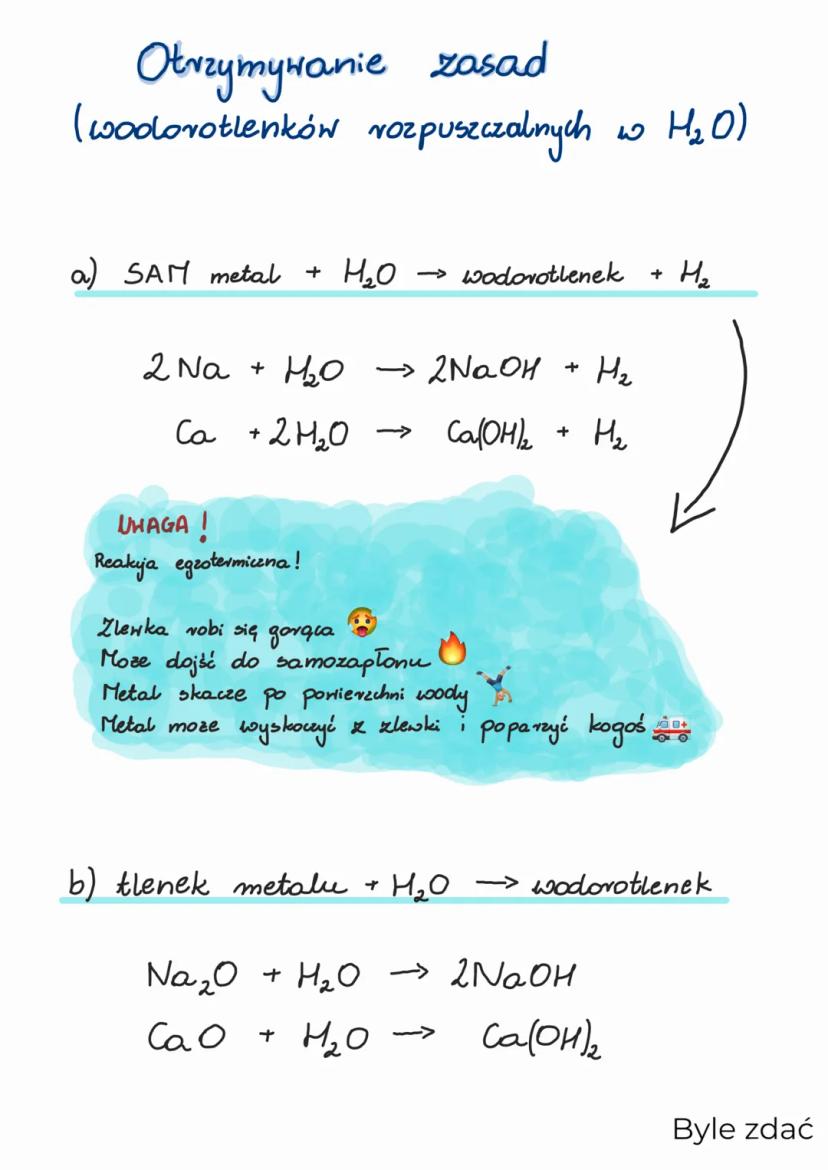 Otrzymywanie zasad
(wodorotlenków rozpuszczalnych w H₂O)
a) SAM metal + H₂O → wodorotlenek + H₂
2 Na + H₂O → 2NaOH + H₂
Ca + 2H₂O → Ca(OH)₂ + H₂
UWAGA !
Reakcja egzotermiczna!
Zlewka robi się gorąca 🥵
Może dojść do samozapłonu 🔥
Metal skacze po powierzchni wody 🤸
Metal może wyskoczyć z zlewki i poparzyć kogoś 🚑
b) tlenek metalu + H₂O → wodorotlenek
Na₂O + H₂O → 2NaOH
CaO + H₂O → Ca(OH)₂
Byle zdać